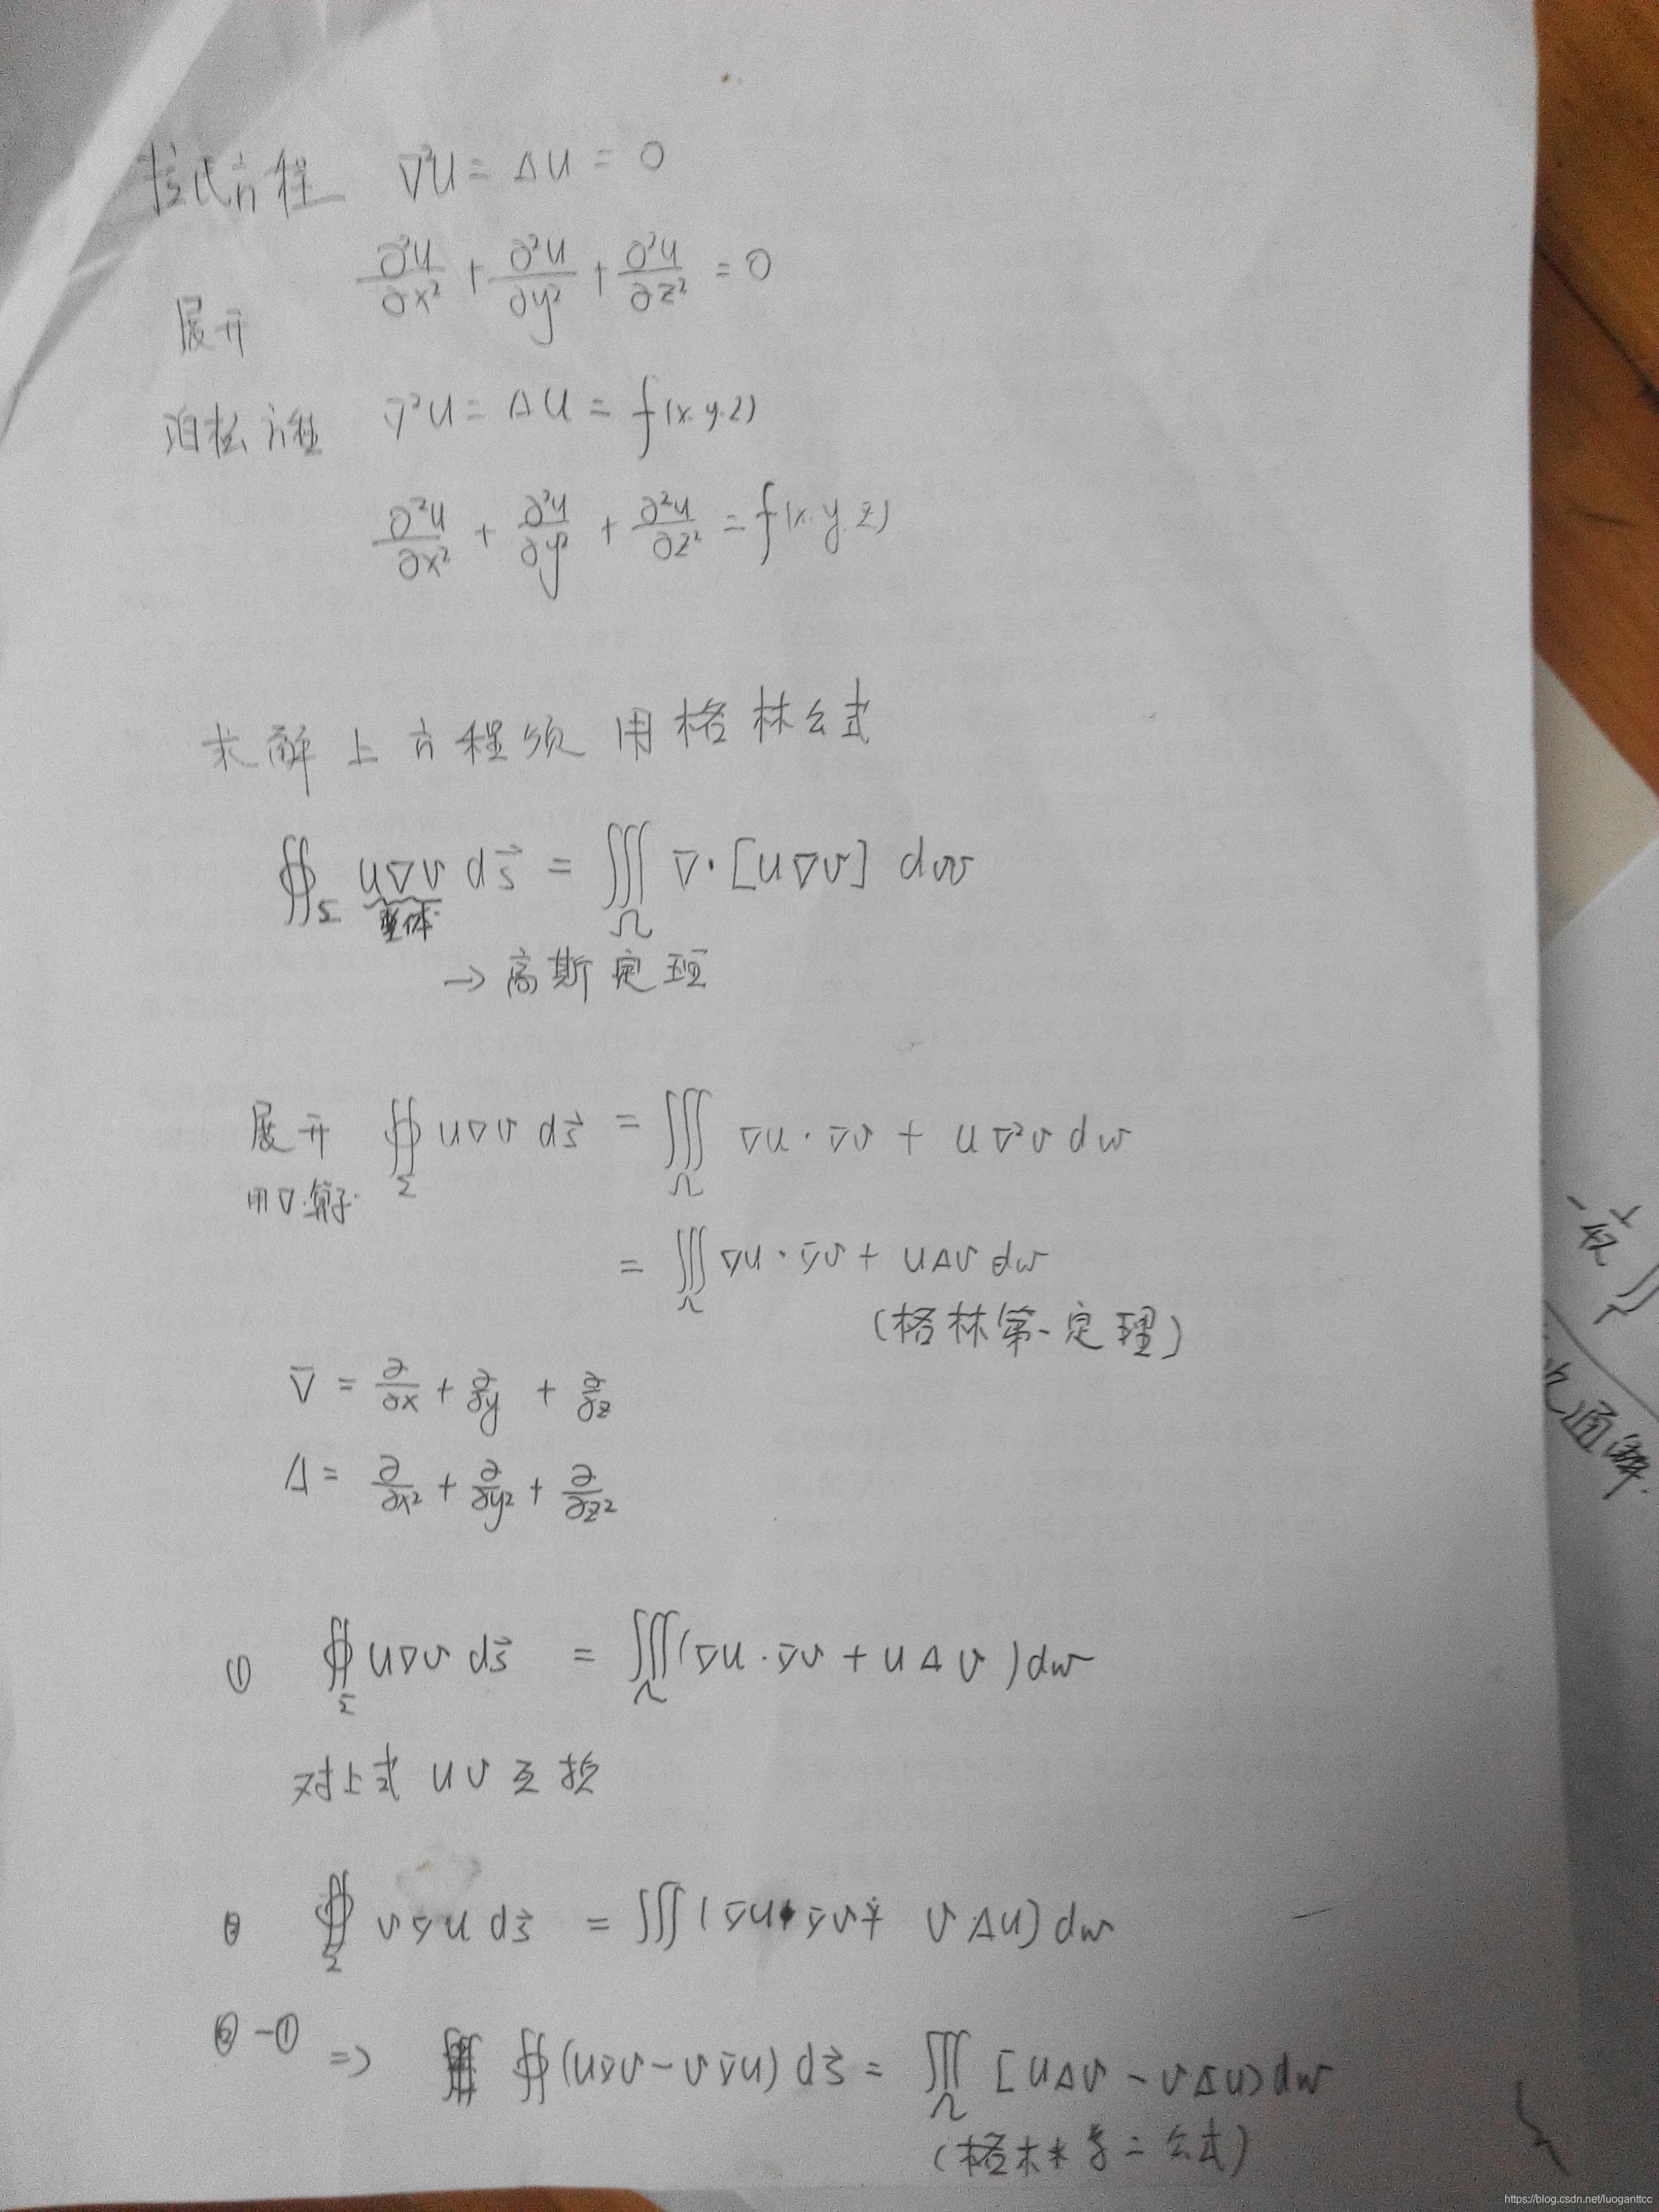 拉氏方程 ∇²u = Δu = 0
∂²u/∂x² + ∂²u/∂y² + ∂²u/∂z² = 0
展开
泊松方程 ∇²u = Δu = f(x.y.z)
∂²u/∂x² + ∂²u/∂y² + ∂²u/∂z² = f(x.y.z)
求解上方程须用格林公式
∯_Σ u∇v ds⃗ = ∭_Ω ∇·[u∇v] dw
整体
→高斯定理
展开 ∯_Σ u∇v ds⃗ = ∭_Ω ∇u·∇v + u∇²v dw
用∇·算子·
= ∭_Ω ∇u·∇v + uΔv dw
(格林第一定理)
∇ = ∂/∂x + ∂/∂y + ∂/∂z
Δ = ∂/∂x² + ∂/∂y² + ∂/∂z²
① ∯_Σ u∇v ds⃗ = ∭_Ω (∇u·∇v + uΔv) dw
对上式 uv 互换
② ∯_Σ v∇u ds⃗ = ∭ (∇u·∇v + vΔu) dw
②-① => ∯ (u∇v - v∇u) ds⃗ = ∭_Ω [uΔv - vΔu) dw
(格林第二公式)
通解
https://blog.csdn.net/luoganttcc